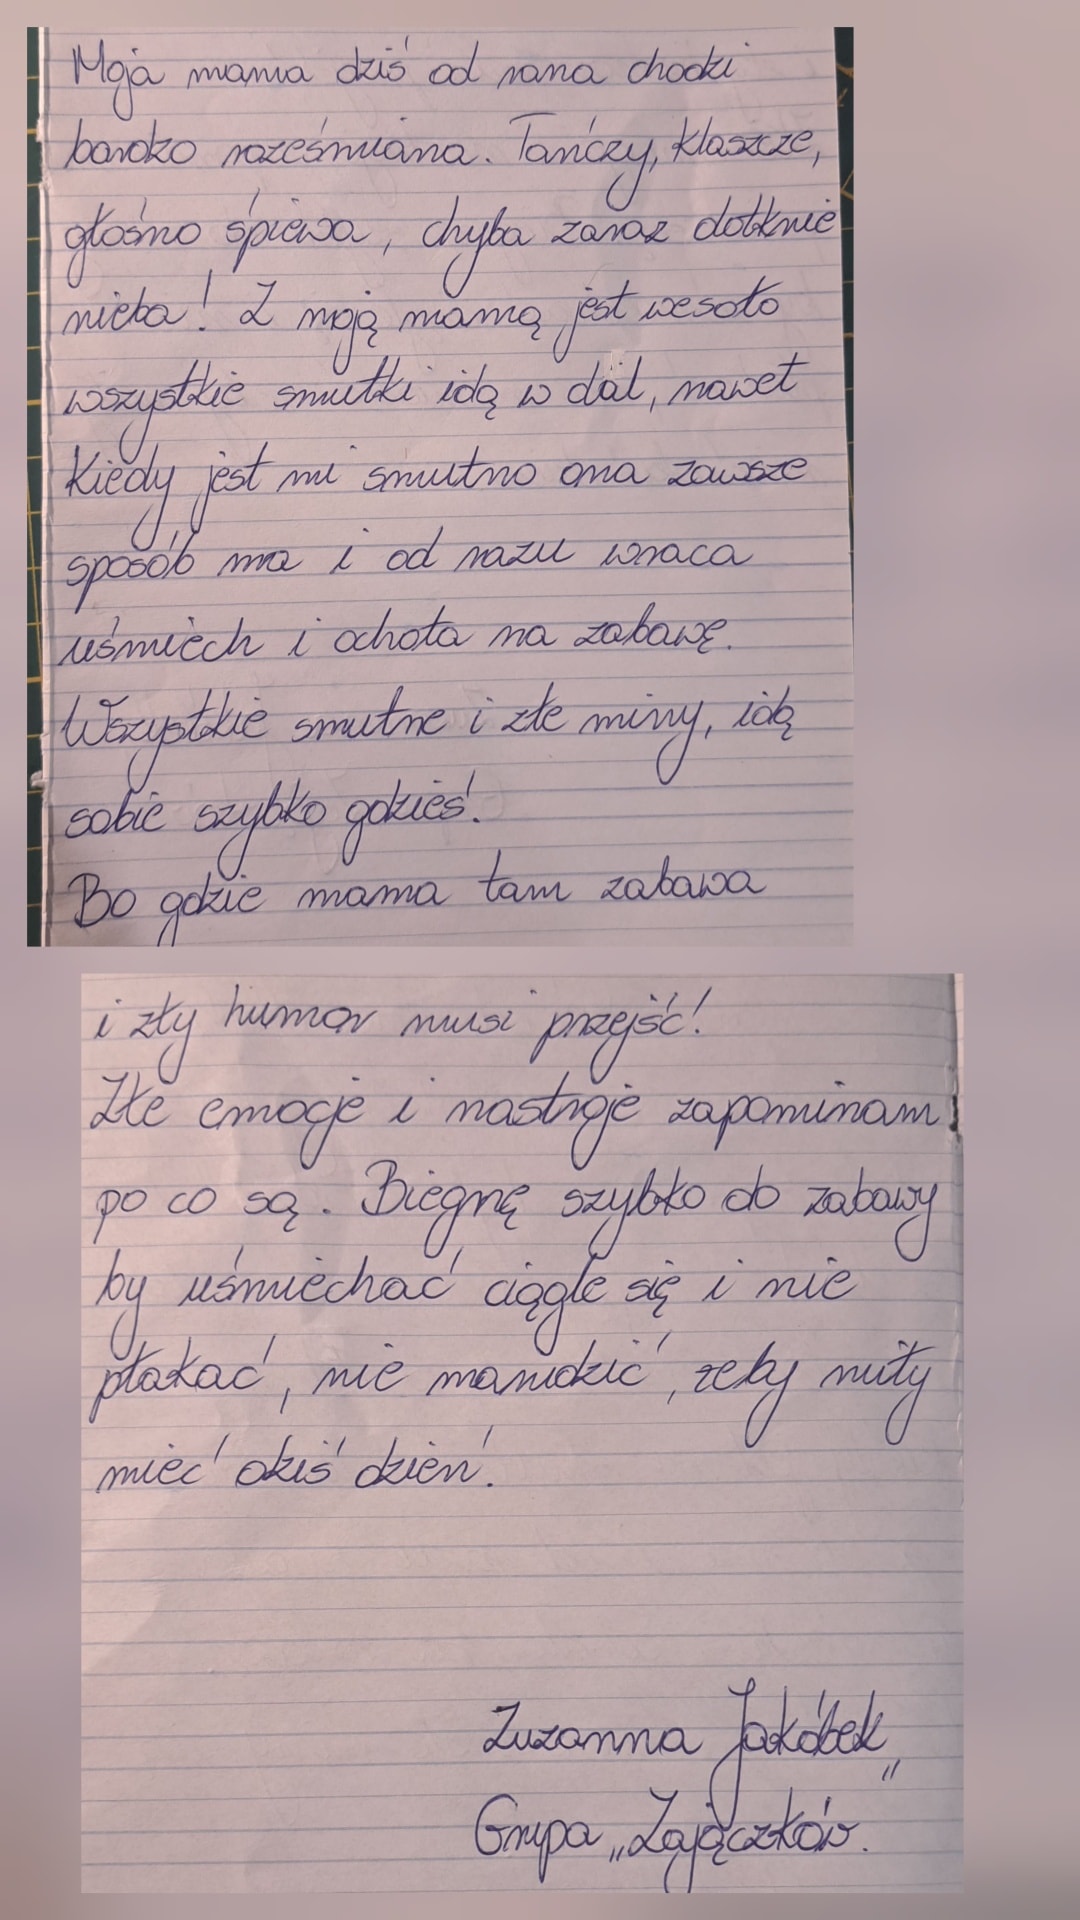 Moja mama dziś od rana chodzi
bardzo roześmiana. Tańczy, klaszcze,
głośno śpiewa, chyba zaraz dotknie
nieba! Z moją mamą jest wesoło
wszystkie smutki idą w dal, nawet
Kiedy jest mi smutno ona zawsze
sposób ma i od razu wraca
uśmiech i ochota na zabawę.
Wszystkie smutne i złe miny, idą
sobie szybko gdzieś.
Bo gdzie mama tam zabawa
i zły humor musi przejść!
Złe emocje i nastroje zapominam
po co są. Biegnę szybko do zabawy
by uśmiechać ciągle się i nie
płakać, nie marudzić, żeby miły
mieć dziś dzień.
Zuzanna Jakóbek
Grupa „Zajączków".